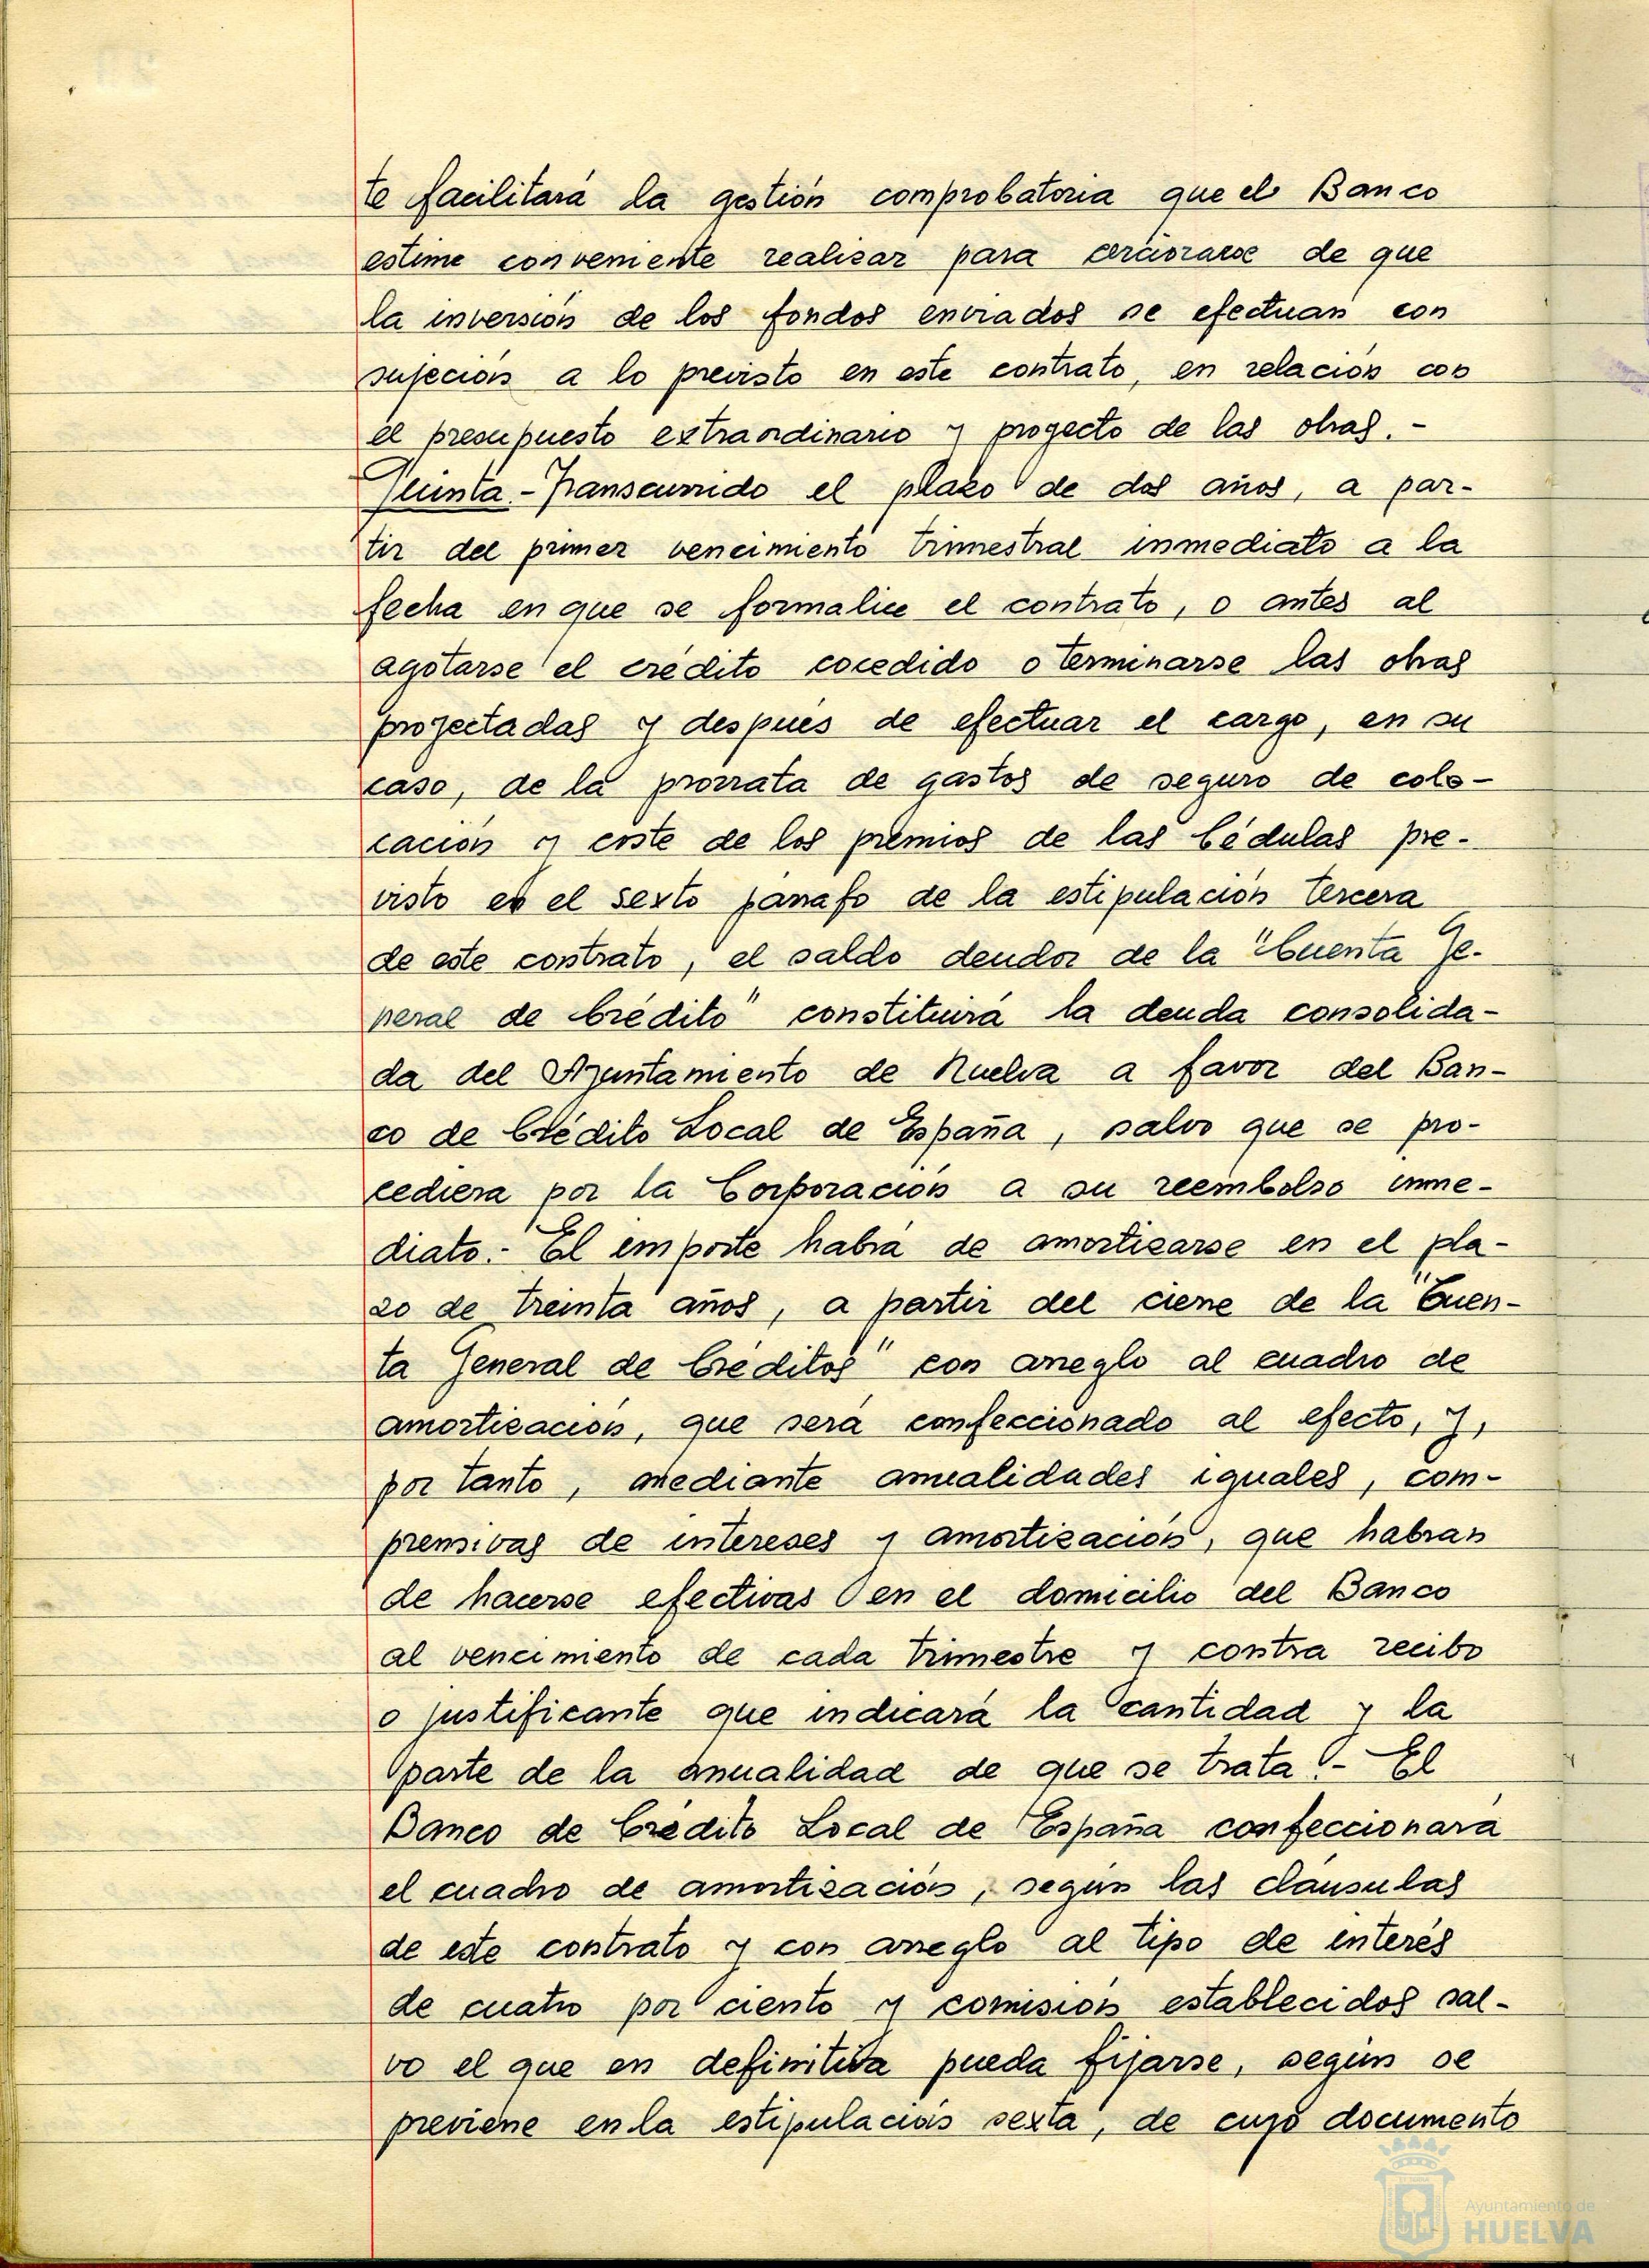 te facilitará la gestión comprobatoria que el Banco
estime conveniente realizar para cerciorarse de que
la inversión de los fondos enviados se efectuan con
sujeción a lo previsto en este contrato, en relación con
el presupuesto extraordinario y proyecto de las obras.-
Quinta.-Transcurrido el plazo de dos años, a par-
tir del primer vencimiento trimestral inmediato a la
fecha en que se formalice el contrato, o antes al
agotarse el crédito cocedido o terminarse las obras
proyectadas y después de efectuar el cargo, en su
caso, de la prorrata de gastos de seguro de colo-
cación y coste de los premios de las Cédulas pre-
visto en el sexto párrafo de la estipulación tercera
de este contrato, el saldo deudor de la "Cuenta Ge-
neral de Crédito" constituirá la deuda consolida-
da del Ayuntamiento de Huelva a favor del Ban-
co de Crédito Local de España, salvo que se pro-
cediera por la Corporación a su reembolso inme-
diato.- El importe habrá de amortizarse en el pla-
zo de treinta años, a partir del cierre de la "Cuen-
ta General de Créditos" con arreglo al cuadro de
amortización, que será confeccionado al efecto, y,
por tanto, mediante anualidades iguales, com-
prensivas de intereses y amortización, que habrán
de hacerse efectivas en el domicilio del Banco
al vencimiento de cada trimestre y contra recibo
o justificante que indicará la cantidad y la
parte de la anualidad de que se trata.- El
Banco de Crédito Local de España confeccionará
el cuadro de amortización, según las cláusulas
de este contrato y con arreglo al tipo de interés
de cuatro por ciento y comisión establecidos sal-
vo el que en definitiva pueda fijarse, según se
previene en la estipulación sexta, de cuyo documento
Ayuntamiento de
HUELVA